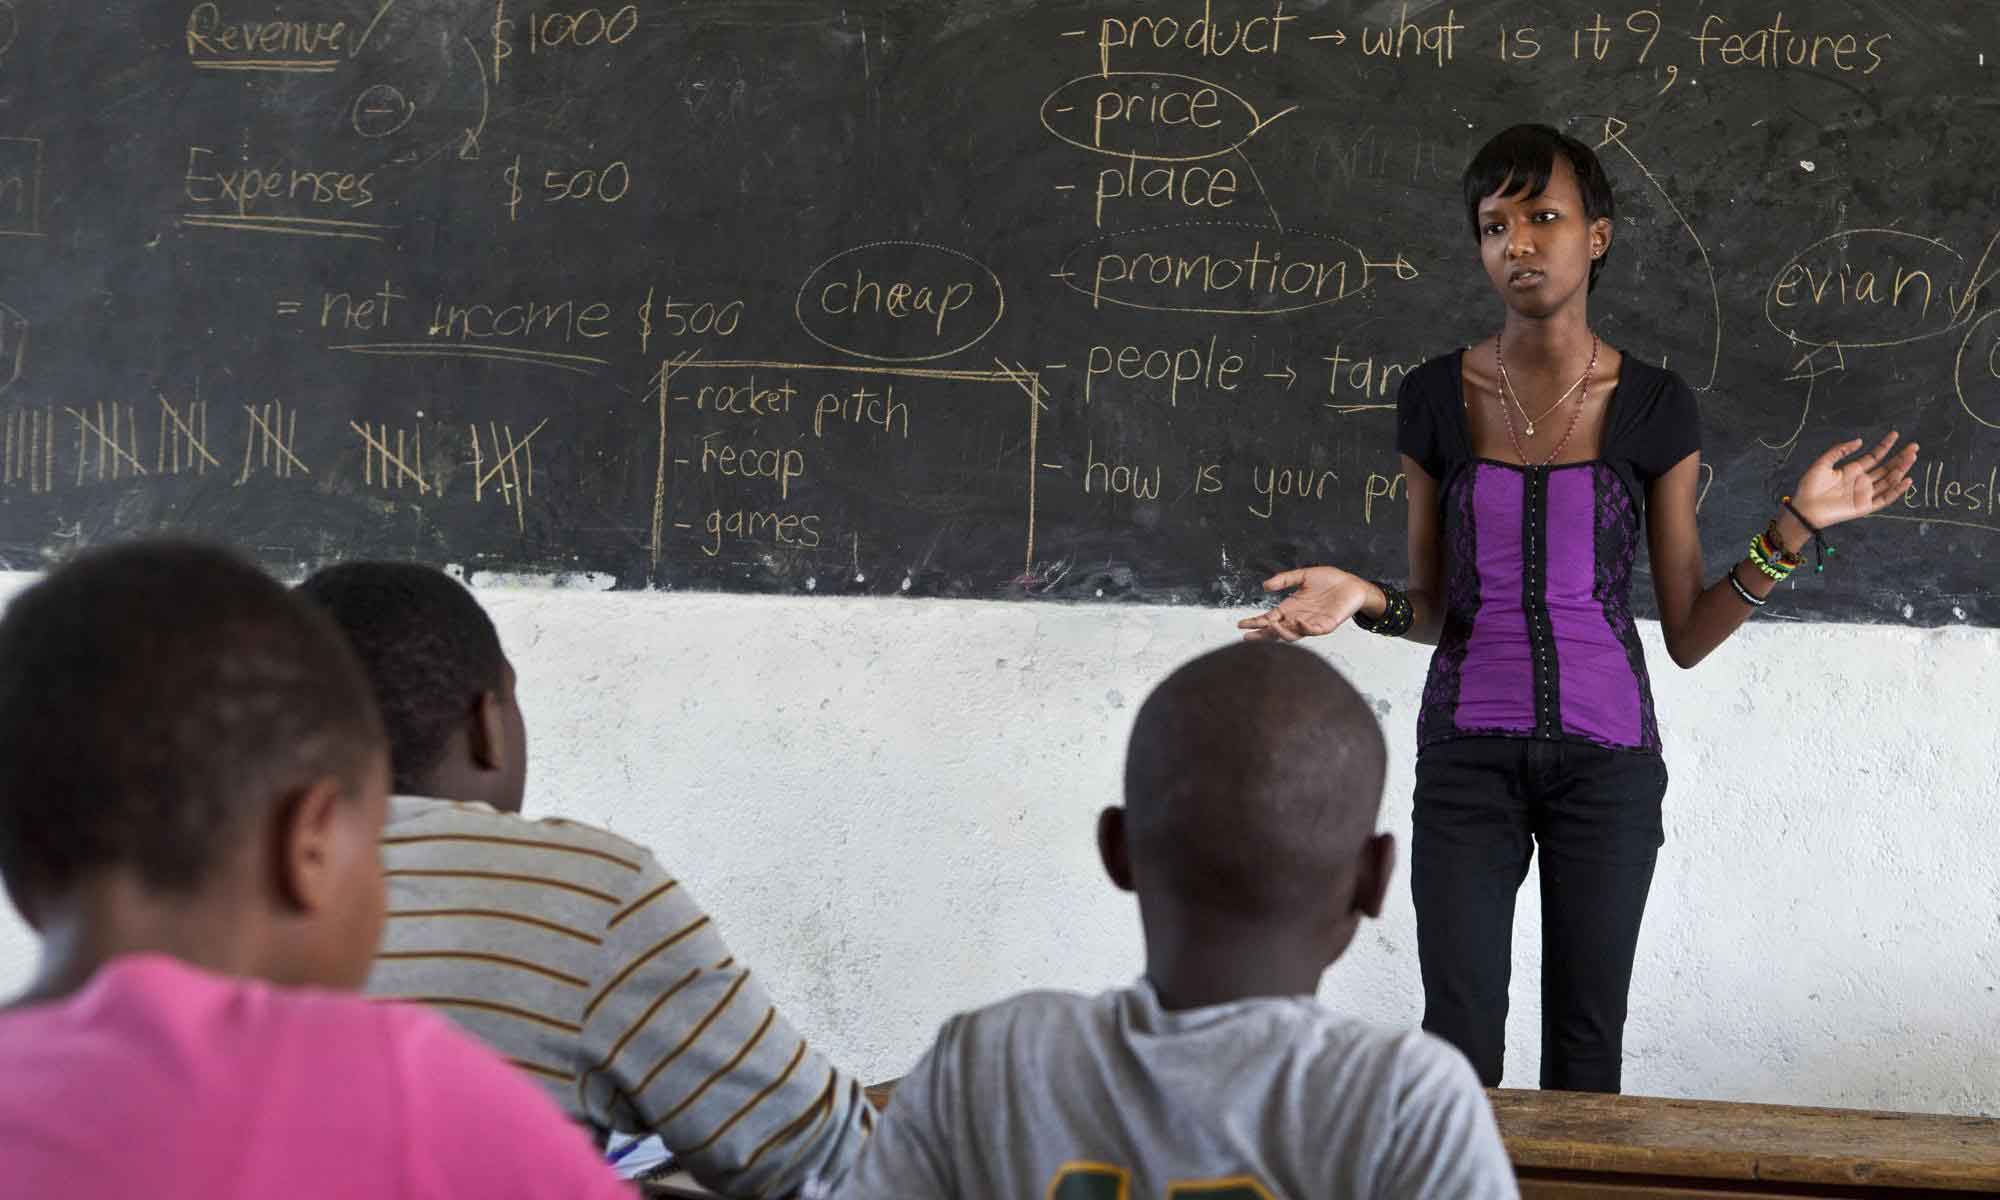 Revenue $1000
-
Expenses $500
= net income $500
cheap
- rocket pitch
- recap
- games
- product → what is it?, features
- price
- place
- promotion →
- people →
- how is your
evian